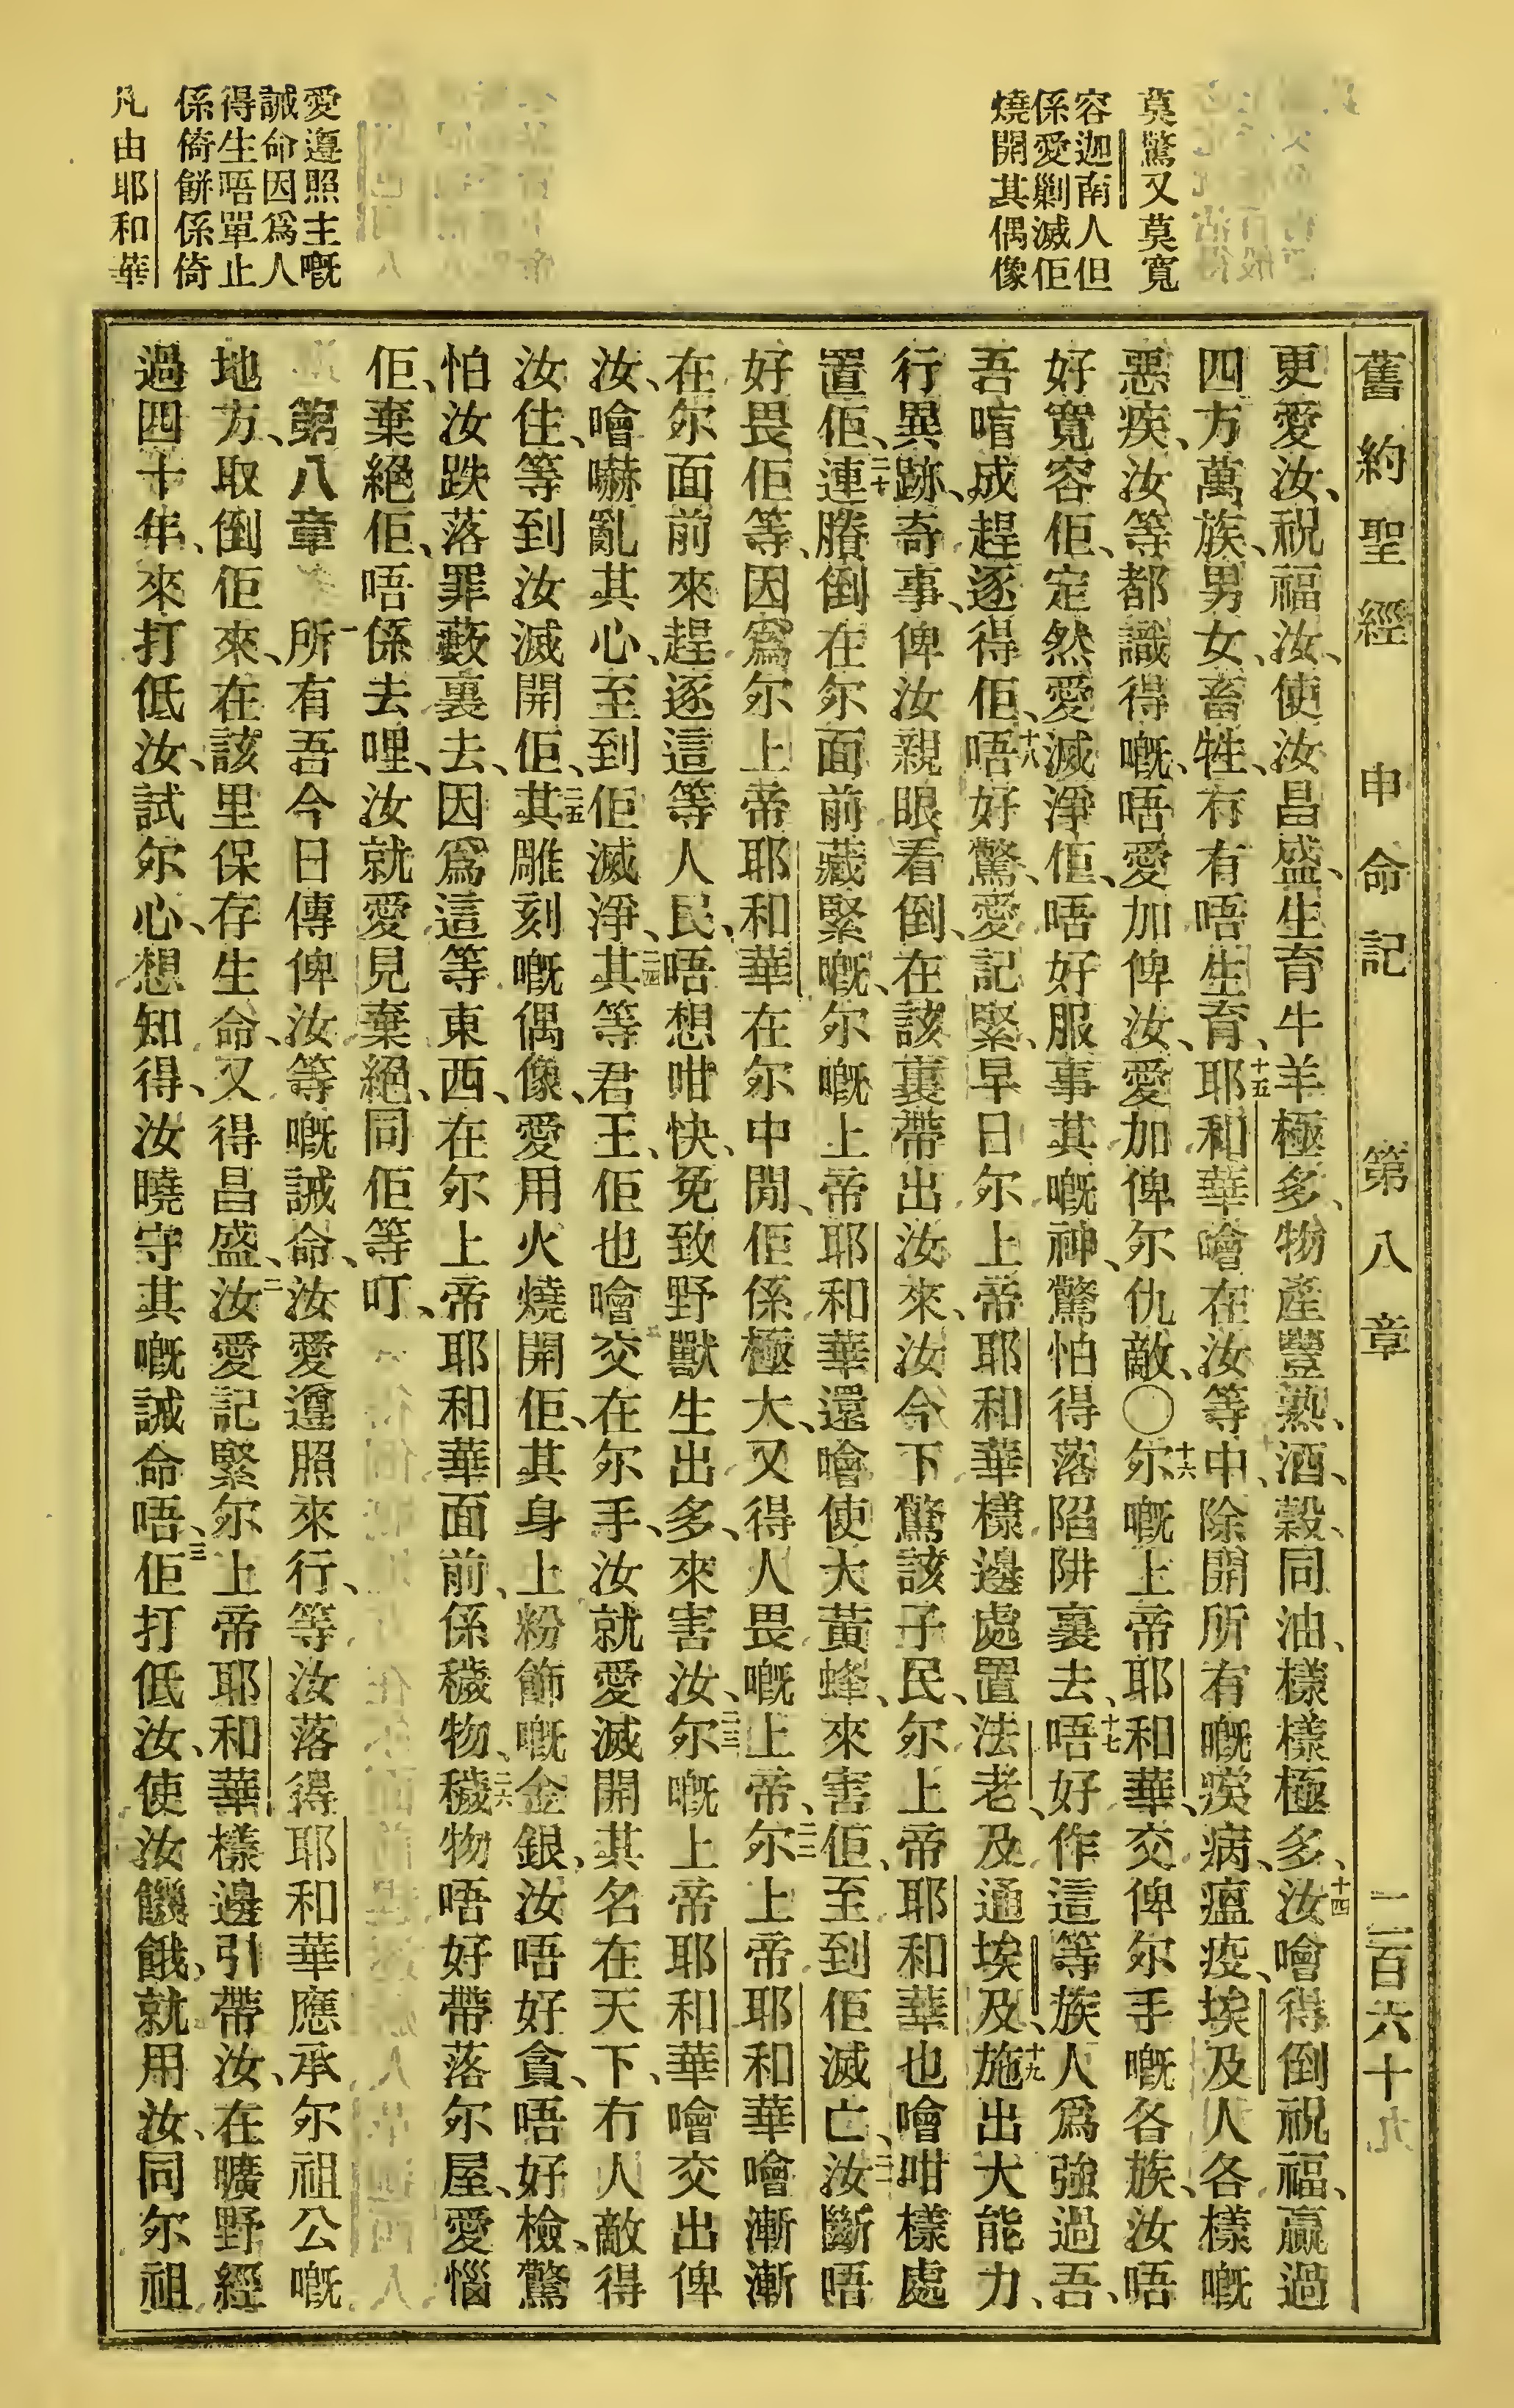 舊約聖經 申命記 第八章 二百六十九
莫驚又莫寬
容迦南人但
係愛剿滅佢
燒開其偶像
愛遵照主嘅
誡命因爲人
得生唔單止
係倚餅係倚
凡由耶和華
更愛汝、祝福汝、使汝昌盛、生育牛羊極多、物產豐熟、酒、穀、同油、樣樣極多、十四汝噲得倒祝福、贏過
四方萬族、男女、畜牲、冇有唔生育、十五耶和華噲在汝等中、除開所有嘅瘼病、瘟疫、埃及人各樣嘅
惡疾、汝等都識得嘅、唔愛加俾汝、愛加俾尔仇敵、〇十六尔嘅上帝耶和華、交俾尔手嘅各族、汝唔
好寬容佢、定然愛滅淨佢、唔好服事其嘅神、驚怕得落陷阱裏去、十七唔好作這等族人爲強過吾、
吾喑成趕逐得佢、十八唔好驚、愛記緊、早日尔上帝耶和華樣邊處置法老、及通埃及、十九施出大能力、
行異跡、奇事、俾汝親眼看倒、在該裏帶出汝來、汝今下驚該子民、尔上帝耶和華也噲咁樣處
置佢、二十連賸倒在尔面前藏緊嘅、尔嘅上帝耶和華還噲使大黃蜂、來害佢、至到佢滅亡、二一汝斷唔
好畏佢等、因爲尔上帝耶和華在尔中間、佢係極大、又得人畏嘅上帝、二二尔上帝耶和華噲漸漸
在尔面前來趕逐這等人民、唔想咁快、免致野獸生出多、來害汝、二三尔嘅上帝耶和華噲交出俾
汝、噲嚇亂其心、至到佢滅淨、二四其等君王、佢也噲交在尔手、汝就愛滅開其名在天下、冇人敵得
汝住、等到汝滅開佢、二五其雕刻嘅偶像、愛用火燒開佢、其身上粉飾嘅金銀、汝唔好貪、唔好檢、驚
怕汝跌落罪藪裏去、因爲這等東西、在尔上帝耶和華面前、係穢物、二六穢物唔好帶落尔屋、愛惱
佢、棄絕佢、唔係去哩、汝就愛見棄絕、同佢等叮、
第八章 一所有吾今日傳俾汝等嘅誡命、汝愛遵照來行、等汝落得耶和華應承尔祖公嘅
地方、取倒佢來、在該里保存生命、又得昌盛、二汝愛記緊尔上帝耶和華樣邊引帶汝、在曠野經
過四十年、來打低汝、試尔心、想知得、汝曉守其嘅誡命唔、三佢打低汝、使汝饑餓、就用汝、同尔祖